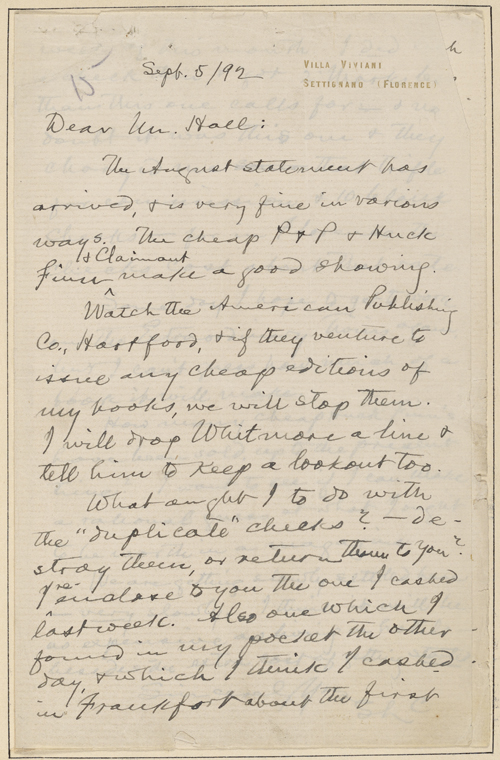 Sept. 5/92
VILLA VIVIANI
SETTIGNANO (FLORENCE)
Dear Mr. Hall:
The August statement has
arrived, & is very fine in various
ways. The cheap P & P & Huck
& Claimant
Finn make a good showing.
Watch the American Publishing
Co., Hartford, & if they venture to
issue any cheap editions of
my books, we will stop them.
I will drop Whitmore a line &
tell him to keep a lookout too.
What ought I to do with
the "duplicate" checks? — de-
stroy them, or return them to you?
I re-enclose to you the one I cashed
last week. Also one which I
found in my pocket the other
day, & which I think I cashed
in Frankfort about the first